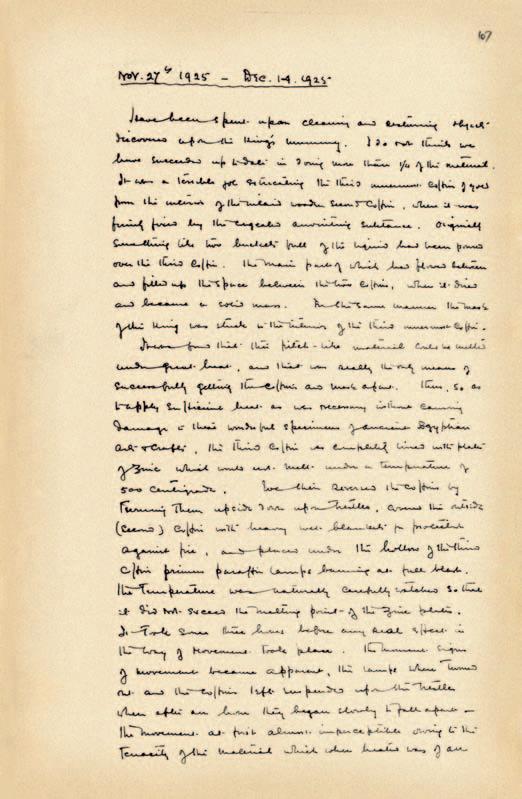 107
Nov. 27th 1925 – Dec. 14. 1925
Have been spent upon cleaning and restoring objects
discovered upon the King's mummy. I do not think we
have succeeded up to date in doing more than 1/4 of the material.
It was a terrible job extricating the third innermost coffin of gold
from the interior of the wooden second coffin, where it was
firmly fixed by the anointing substance. Originally
something like two buckets full of the liquid had been poured
over the third coffin. The main part of which had flowed between
and filled up the space between the two coffins, where it dried
and became a solid mass. In the same manner the mask
of the King was stuck to the interior of the third innermost coffin.
It was found that this pitch-like material could be melted
under great heat, and that was really the only means of
successfully getting the coffins and mask apart. Thus, so as
to apply sufficient heat as was necessary without causing
damage to these wonderful specimens of ancient Egyptian
arts & crafts, the third coffin was completely lined with plates
of zinc which would not melt under a temperature of
500 centigrade. We then reversed the coffins by
turning them upside down upon trestles, covered the outside
(second) coffin with heavy wet blankets for protection
against fire, and placed under the hollow of the third
coffin primus paraffin lamps burning at full blast.
The temperature was naturally carefully watched so that
it did not exceed the melting point of the zinc plates.
It took some three hours before any real effect in
the way of movement took place. The moment signs
of movement became apparent, the lamps were turned
out and the coffins left suspended upon the trestles
when after an hour they began slowly to fall apart –
the movement at first almost imperceptible owing to the
tenacity of the material which when heated was of an